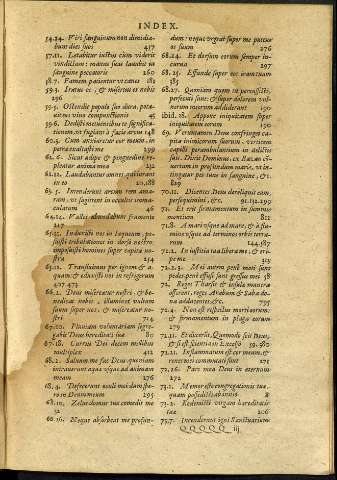 INDEX.
54.24. Viri sanguinum non dimidia-
bunt dies suos 457
57.11. Lætabitur iustus cum viderit
vindictam: manus suas lauabit in
sanguine peccatoris 260
58.7. Famem patientur vt canes 181
59.3. Iratus es, & misertus es nobis
296
59.5. Ostendisti populo tuo dura, pota-
sti nos vino compunctionis 45
59.6. Dedisti metuentibus te significa-
tionem, vt fugiant à facie arcus 148
60.3. Cum anxiaretur cor meum, in
petra exaltasti me 299
62.6. Sicut adipe & pinguedine re-
pleatur anima mea 232
62.12. Laudabuntur omnes qui iurant
in eo
63.5. Intenderunt arcum rem ama-
ram, vt sagittent in occultis imma-
culatum 46
64.14. Valles abundabunt frumento
217
65.11. Induxisti nos in laqueum, po-
suisti tribulationes in dorso nostro,
imposuisti homines super capita no-
stra
65.12. Transiuimus per ignem & a-
quam, & eduxisti nos in refrigerium
427 473
66.2. Deus misereatur nostri, & be-
nedicat nobis, illuminet vultum
suum super nos, & misereatur no-
stri 714
67.10. Pluuiam voluntariam segre-
gabis Deus hereditati tuæ 811
67.18. Currus Dei decem millibus
multiplex 411
68.2. Saluum me fac Deus quoniam
intrauerunt aquæ vsque ad animam
meam 276
68.4. Defecerunt oculi mei dum spe-
ro in Deum meum 295
68.10. Zelus domus tuæ comedit me
32
68.16. Neque absorbeat me profun-
dum: neque vrgeat super me puteus
os suum 276
68.24. Et dorsum eorum semper in-
curua 297
68.25. Effunde super eos iram tuam
385
68.27. Quoniam quem tu percussisti,
persecuti sunt: & super dolorem vul-
nerum meorum addiderunt 190
ibid. 28. Appone iniquitatem super
iniquitatem eorum 190
69. Verumtamen Deus confringet ca-
pita inimicorum suorum, verticem
capilli perambulantium in delictis
suis. Dixit Dominus, ex Basan cō-
uertam in profundum maris, vt in-
tingatur pes tuus in sanguine, &c.
829
70.11. Dicentes Deus dereliquit eum,
persequimini, &c. 91.132.199
71. Et erit firmamentum in summis
montium 812
71.8. A mari vsque ad mare, & à flu-
mine vsque ad terminos orbis terra-
rum 144.587
71.2. In iustitia tua libera me, & eri-
pe me 315
72.2.3. Mei autem penè moti sunt
pedes, penè effusi sunt gressus mei 58
72. Reges Tharsis & insulæ munera
offerent, reges Arabum & Saba do-
na adducent, &c. 795
72.4. Non est respectus morti eorum,
& firmamentum in plaga eorum
279
72.11. Et dixerūt, Quomodo scit Deus,
& si est scientia in Excelso 59.980
72.21. Inflammatum est cor meum, &
renes mei commutati sunt 271
72.26. Pars mea Deus in æternum
272
73.2. Memor esto congregationis tuæ,
quam possedisti ab initio 8
73.2. Redemisti virgam hereditatis
tuæ 206
73.7. Incenderunt igni Sanctuarium
QQQQQ iij